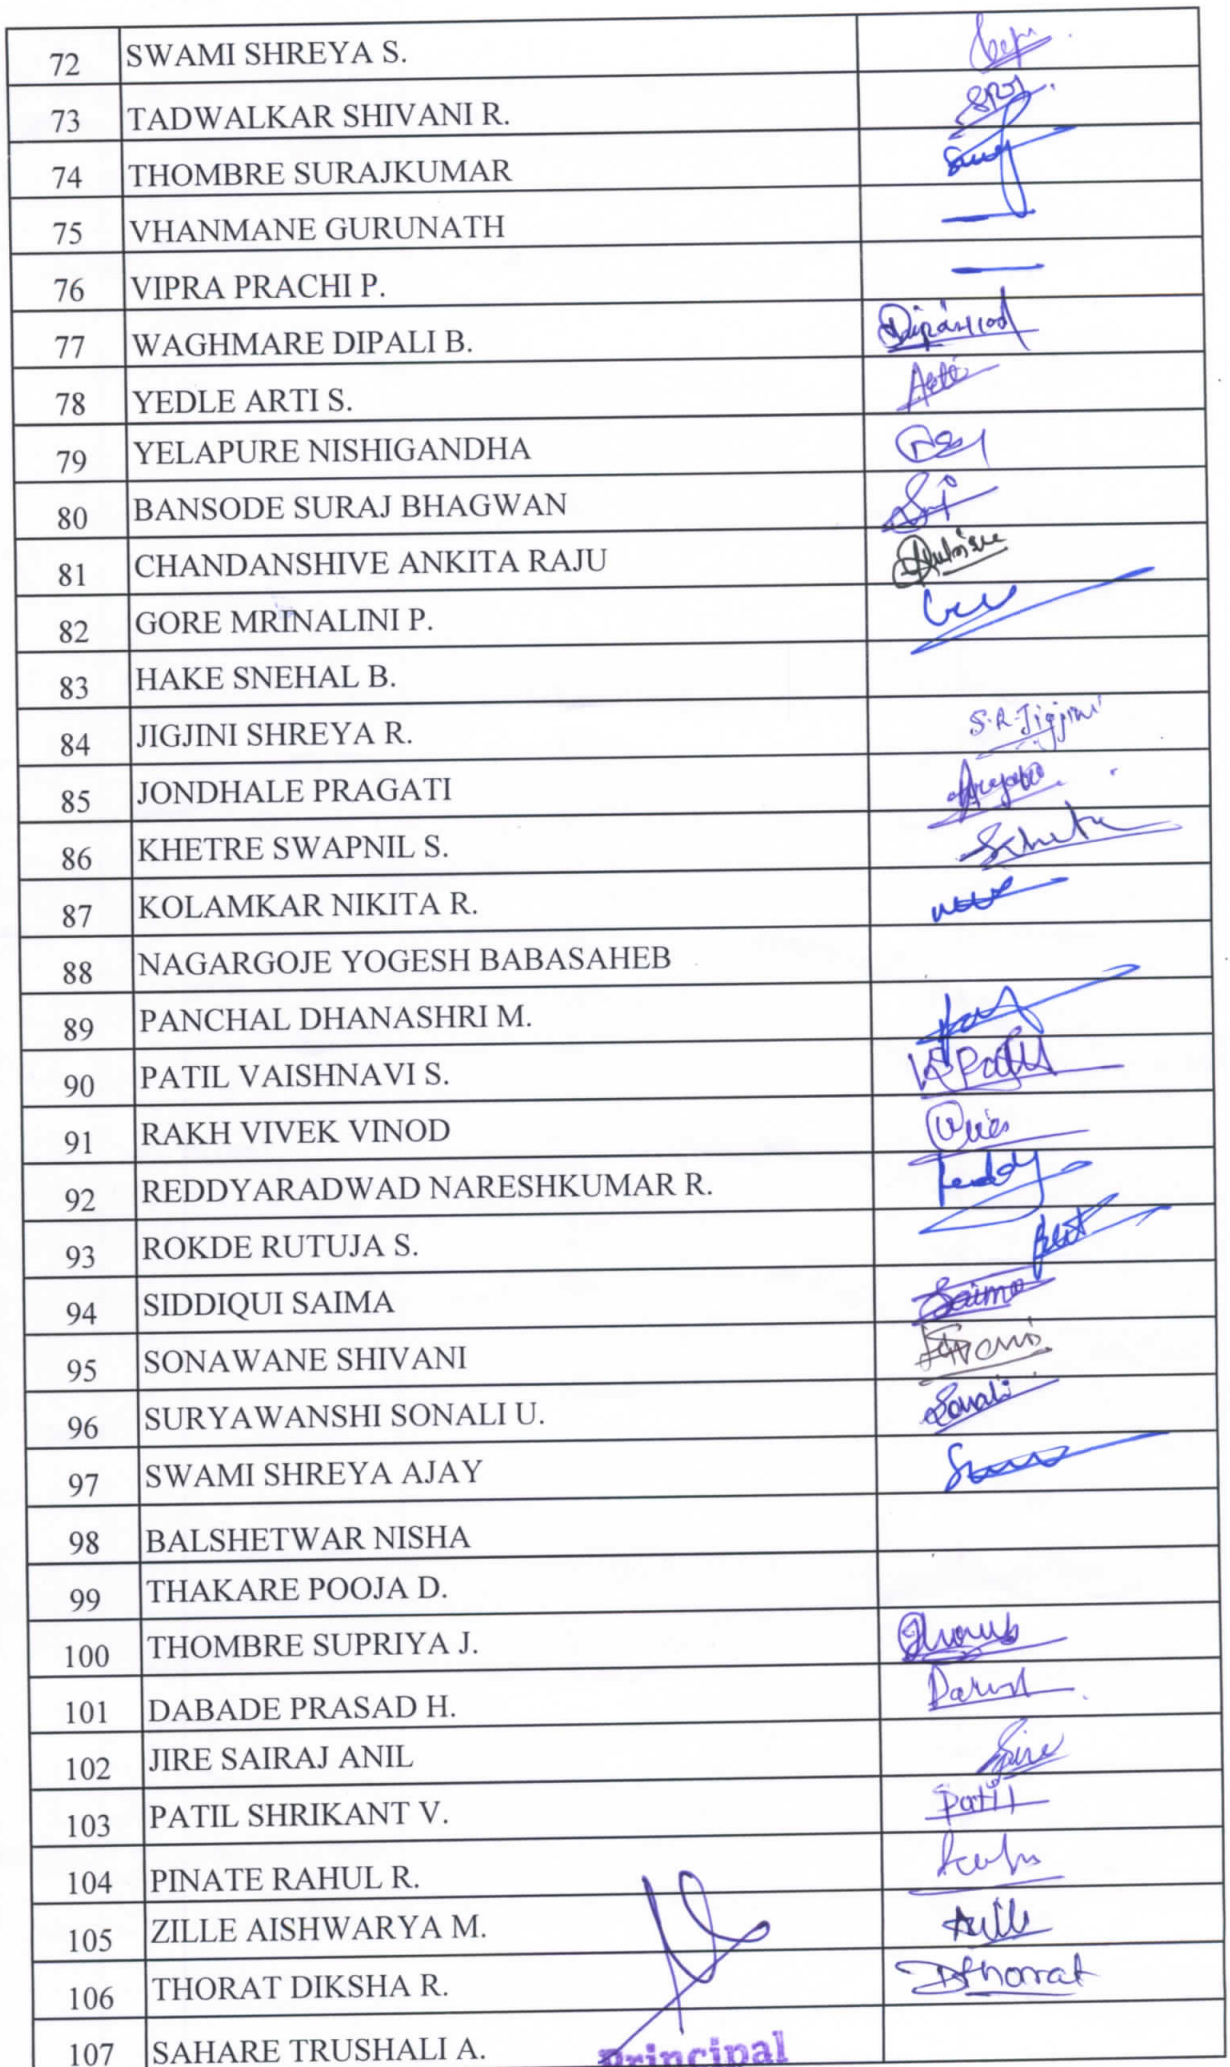 72 SWAMI SHREYA S.
73 TADWALKAR SHIVANI R.
74 THOMBRE SURAJKUMAR
75 VHANMANE GURUNATH —
76 VIPRA PRACHI P. —
77 WAGHMARE DIPALI B.
78 YEDLE ARTI S.
79 YELAPURE NISHIGANDHA
80 BANSODE SURAJ BHAGWAN
81 CHANDANSHIVE ANKITA RAJU
82 GORE MRINALINI P.
83 HAKE SNEHAL B.
84 JIGJINI SHREYA R. S.R.Jigjini
85 JONDHALE PRAGATI
86 KHETRE SWAPNIL S.
87 KOLAMKAR NIKITA R.
88 NAGARGOJE YOGESH BABASAHEB
89 PANCHAL DHANASHRI M.
90 PATIL VAISHNAVI S. VSPatil
91 RAKH VIVEK VINOD
92 REDDYARADWAD NARESHKUMAR R. Reddy
93 ROKDE RUTUJA S.
94 SIDDIQUI SAIMA Saima
95 SONAWANE SHIVANI
96 SURYAWANSHI SONALI U. Sonali
97 SWAMI SHREYA AJAY
98 BALSHETWAR NISHA
99 THAKARE POOJA D.
100 THOMBRE SUPRIYA J.
101 DABADE PRASAD H.
102 JIRE SAIRAJ ANIL Jire
103 PATIL SHRIKANT V. Patil
104 PINATE RAHUL R.
105 ZILLE AISHWARYA M.
106 THORAT DIKSHA R. DThorat
107 SAHARE TRUSHALI A.
Principal